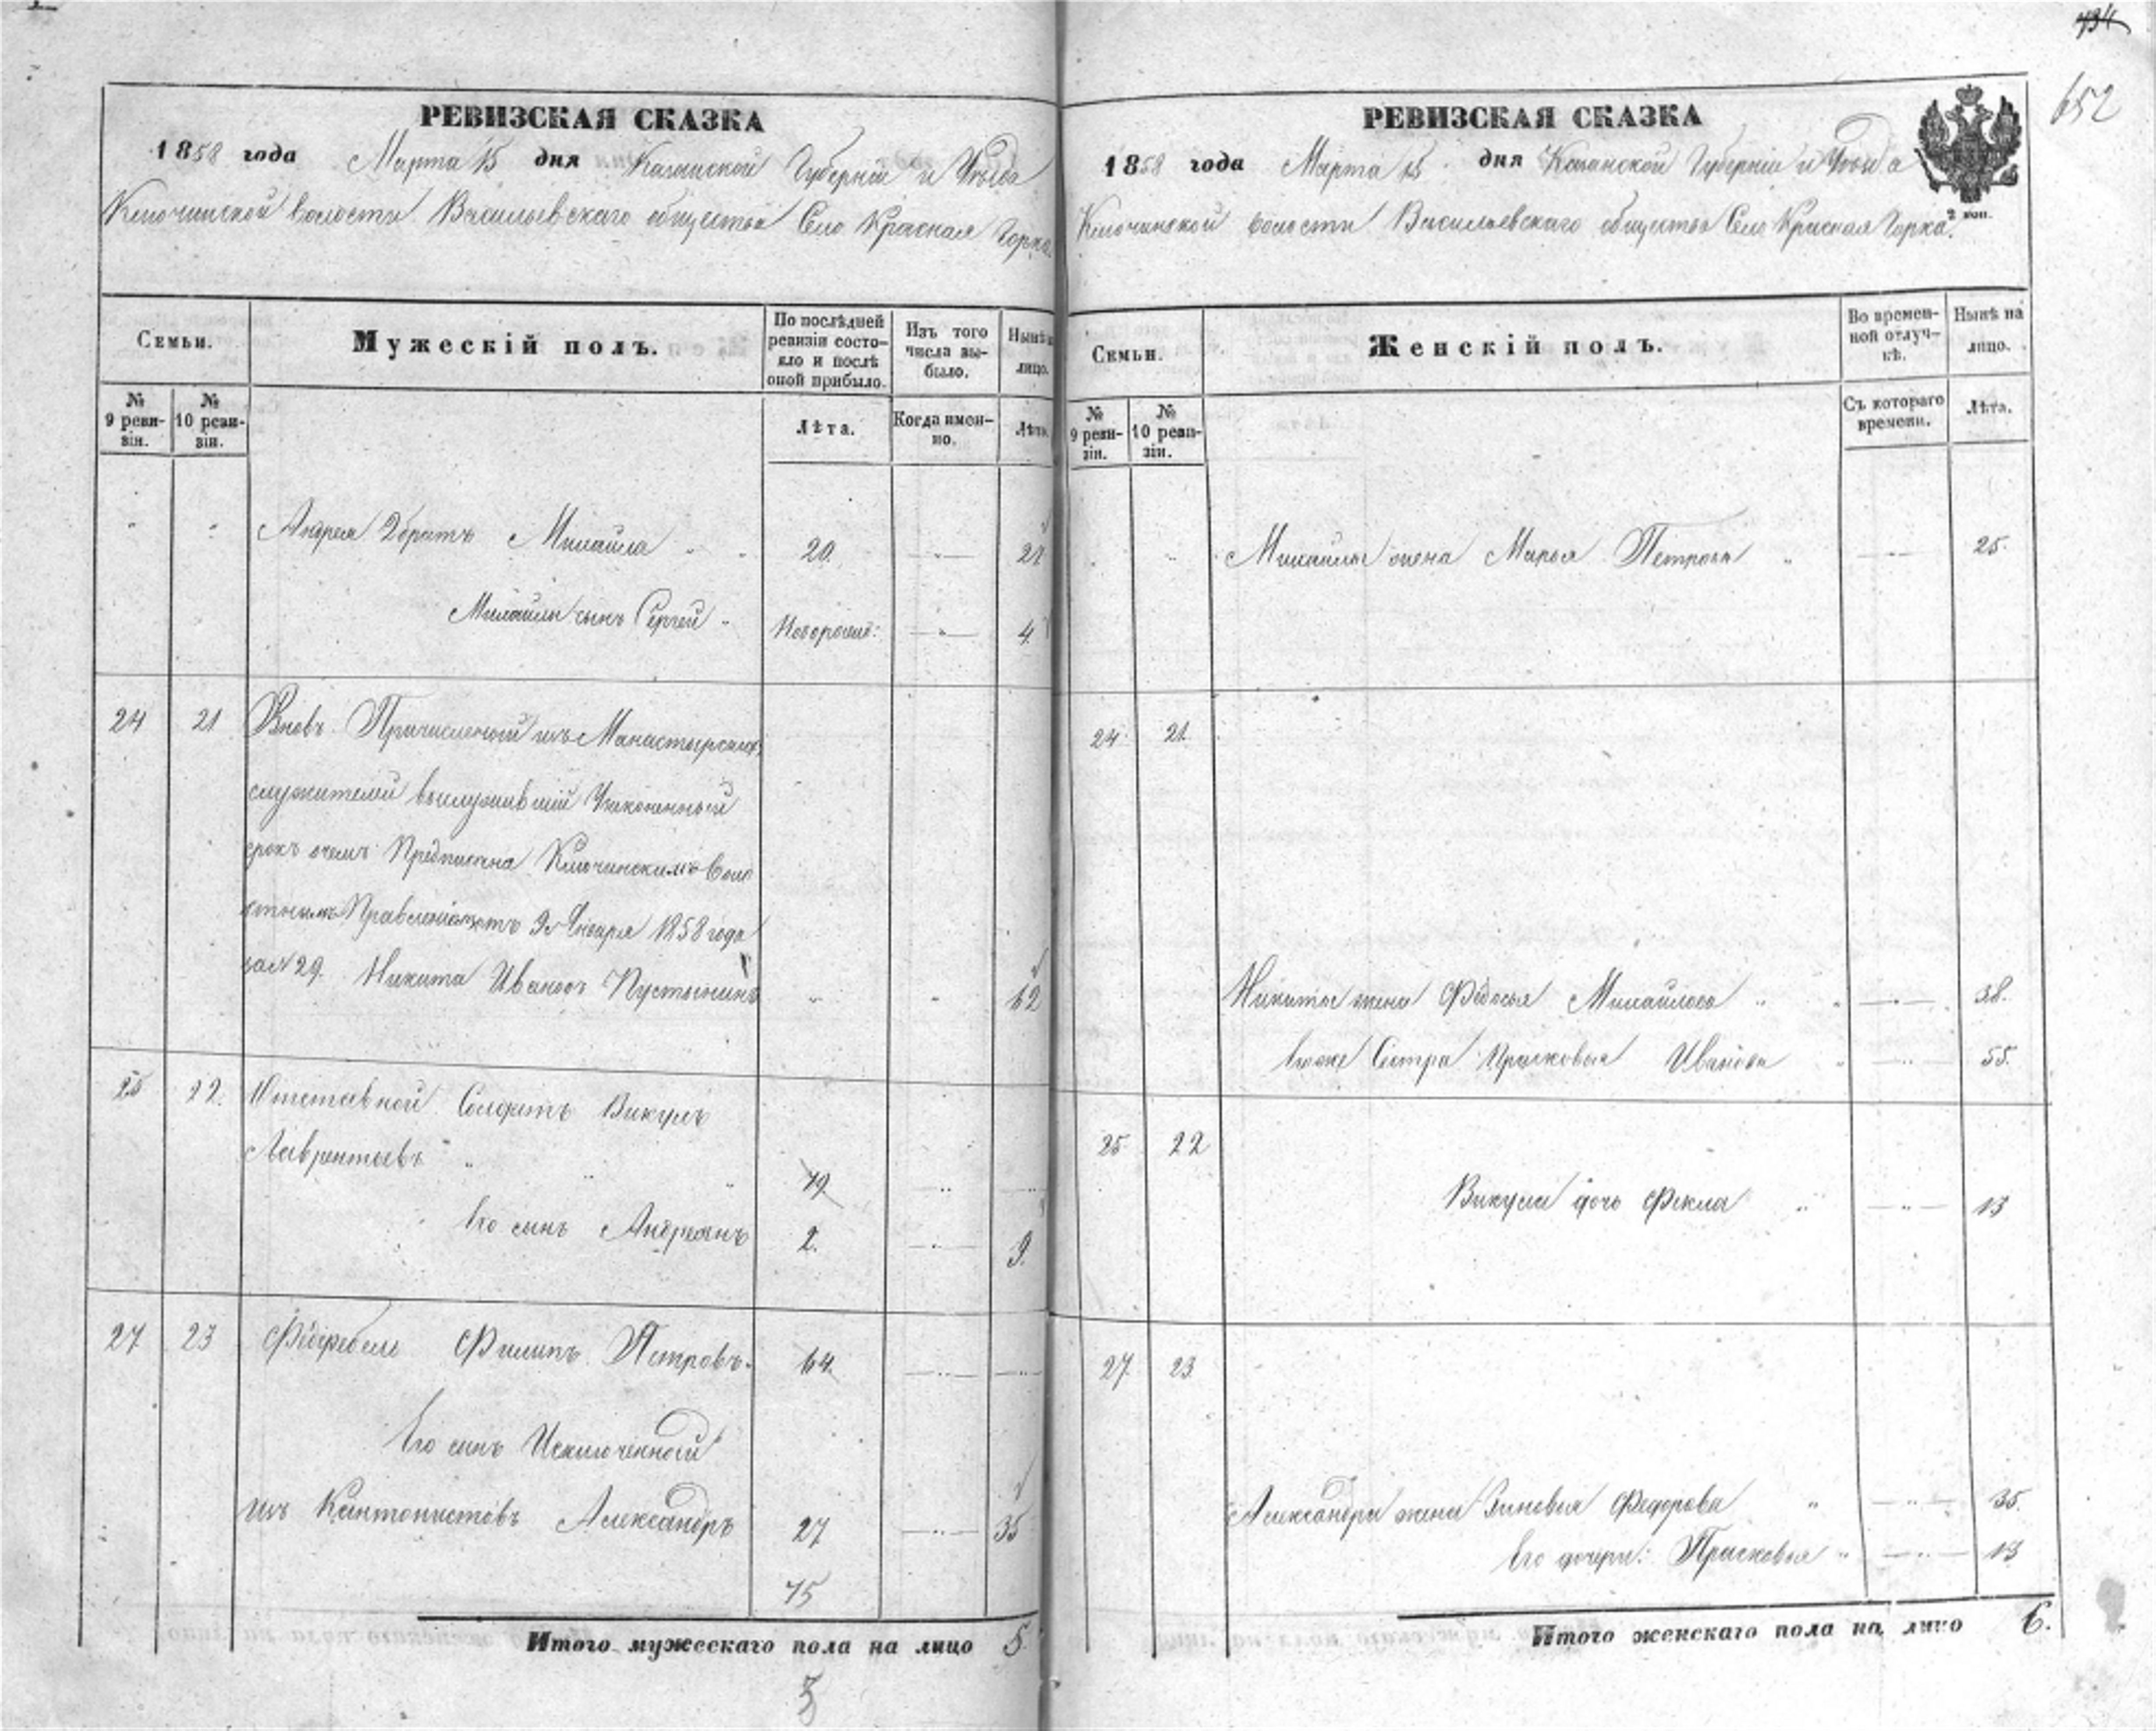 734
652
РЕВИЗСКАЯ СКАЗКА
1858 года Марта 15 дня Казанской Губернии и Уезда
Ключинской волости Васильевскаго общества Село Красная Горка
Семьи.
Мужескій полъ.
По послѣдней ревизіи состо-
яло и послѣ
оной прибыло.
Изъ того
числа вы-
было.
Нынѣ на
лицо.
№
9 реви-
зіи.
№
10 реви-
зіи.
Лѣта.
Когда имен-
но.
Лѣта.
" " Андрея 2 братъ Михайла " " 20. —"— 27
Михайлы сынъ Сергей " Новорожд: —"— 4.
24 21 Вновь Причисленой изъ Манастырскихъ
служителей выслужившій Узаконенный
срокъ очемъ Предписана Ключинскимъ Воло
стнымъ Правленіемъ отъ 9 Января 1858 года
за № 29. Никита Иванов Пустынинъ " " 62
25 22. Отставной Солдатъ Викулъ
Лаврентьевъ " " " 79 —"— —"—
Его сынъ Андреянъ 2. —"— 9.
27 23 Фелдфебель Филипъ Петровъ. 64. —"— —"—
Его сынъ Исключенной
изъ Кантонистовъ Александръ 27 —"— 35
75
Итого мужескаго пола на лицо 5.
3
РЕВИЗСКАЯ СКАЗКА
1858 года Марта 15 дня Казанской Губерніи и Уезда
2 коп.
Ключинской волости Васильевскаго общества Село Красная Горка.
Семьи.
Женскій полъ.
Во времен-
ной отлуч-
кѣ.
Нынѣ на
лицо.
№
9 реви-
зіи.
№
10 реви-
зіи.
Съ котораго
времени.
Лѣта.
" " Михайлы жена Марья Петрова " —"— 25.
24 21
Никиты жена Федосья Михайлова " " —"— 38.
Его же Сестра Прасковья Иванова " —"— 55.
25 22
Викулы дочь Фекла " —"— 13
27 23
Александра жена Зиновья Федорова " —"— 35.
Его дочери: Прасковья " —"— 13
Итого женскаго пола на лицо 6.